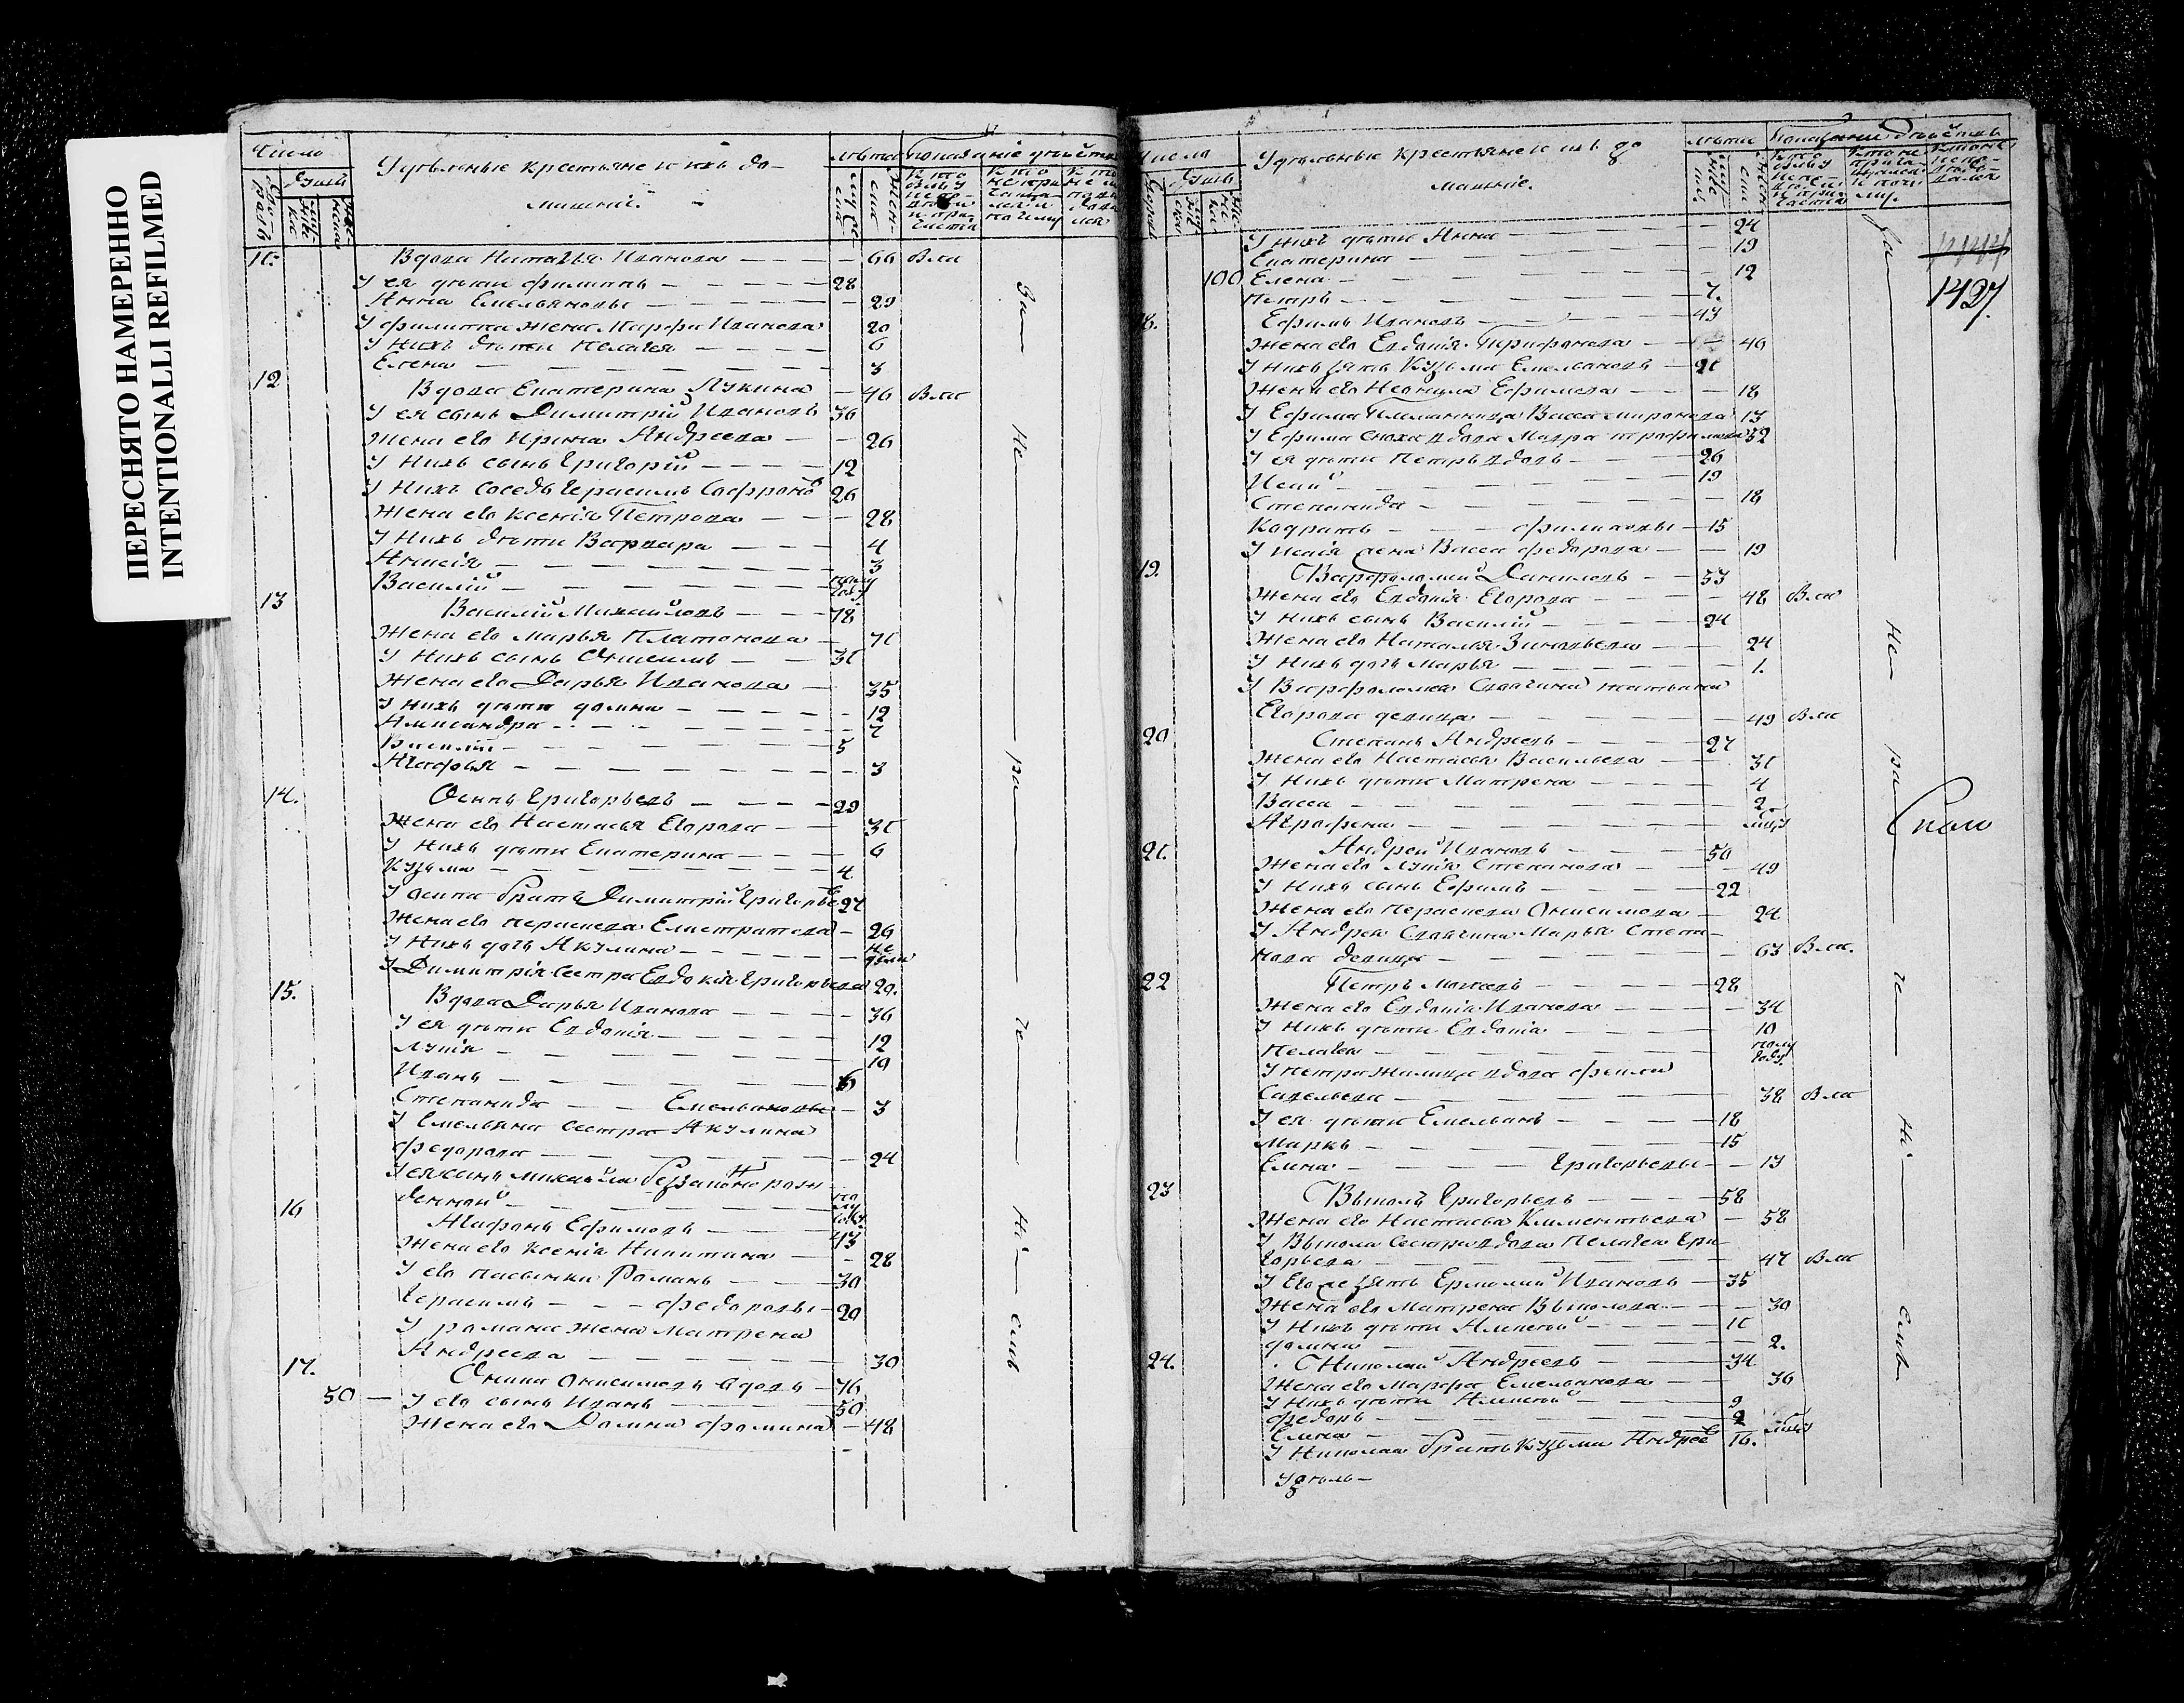 ПЕРЕСНЯТО НАМЕРЕННО
INTENTIONALLI REFILMED
Число
Удѣльные крестьяне и ихъ до-
машніе.
11.
Вдова Наталья Иванова — 66 Была
У ея дѣти Филиппъ — 28
Анна Емельяновы — 29
У Филиппа жена Марфа Иванова 20
У нихъ дѣти Пелагея — 6
Елена — 3
12
Вдова Екатерина Лукина — 46 Была
У ея сынъ Димитрій Ивановъ 36
Жена его Ирина Андреева — 26
У нихъ сынъ Григорій — 12
У нихъ соседъ Герасимъ Софроно 26
Жена его Ксенія Петрова — 28
У нихъ дѣти Варвара — 4
Анисія — 3
Василій — полу году
13
Василій Михайловъ — 78
Жена его Марья Платонова — 71
У нихъ сынъ Онисимъ — 31
Жена его Дарья Иванова — 35
У нихъ дѣти Домна — 12
Александра — 7
Василій — 5
Агафья — 3
14.
Осипъ Григорьевъ — 29
Жена его Настасья Егорова — 31
У нихъ дѣти Екатерина — 6
Кузьма — 4
У Осипа братъ Димитрій Григорье 27
Жена его Парасковья Елистратова — 26
У нихъ дочь Акулина — недели
У Димитрія сестра Евдокія Григорьева 20.
15.
Вдова Дарья Иванова — 36
У ея дѣти Евдокія — 12
Лукія — 10
Иванъ — 6
Степанида — Емельяновы — 3
У Емельяна сестра Акулина
Федорова — 24
У ея сынъ Михайла беззаконно рож
денной — полу году.
16
Агафонъ Ефимовъ — 43
Жена его Ксенія Никитина — 28
У его пасынки Романъ — 30
Герасимъ — Федоровы — 20
У Романа жена Матрена
Андреева — 30
17.
Фома Онисимовъ вдовъ — 76
50 — У его сынъ Иванъ — 50
Жена его Домна Фомина — 48
Число
Удѣльные крестьяне и ихъ до
машніе.
1427.
У нихъ дѣти Анна — 24
Екатерина — 19
100 Елена — 12
Петръ — 7.
18.
Ефимъ Ивановъ — 43
Жена его Евдокія Трифонова — 46
У нихъ зять Кузьма Емельяновъ — 21
Жена его Неонила Ефимова — 18
У Ефима племянница Васса Миронова 13
У Ефима сноха вдова Мавра Трофимова 52
У ея дѣти Петръ вдовъ — 26
Исай — 19
Степанида — 18
Кодратъ — Филиповы — 15
У Исаія жена Васса Федорова — 19
19.
Варфоломей Даниловъ — 53
Жена его Евдокія Егорова — 48 Была
У нихъ сынъ Василій — 24
Жена его Наталья Зиновьева — 24
У нихъ дочь Марья — 1.
У Варфоломея своячина Татьяна
Егорова девица — 49 Была
20
Степанъ Андреевъ — 27
Жена его Настасья Васильева — 31
У нихъ дѣти Матрена — 4
Васса — 2
Аграфена —
21.
Андрей Ивановъ — 50
Жена его Лукія Степанова — 49
У нихъ сынъ Ефимъ — 22
Жена его Парасковья Онисимова — 24
У Андрея своячина Марья Степа-
нова девица — 63 Была.
22
Петръ — 28
Жена его Евдокія Иванова — 34
У нихъ дѣти Евдокія — 10
Пелагея — полу году
У Петра жилица вдова
Савельева — 38 Была
У ея дѣти Емельянъ — 18
Маркъ — 15
Елена — Григорьевы — 13
23
Вуколъ Григорьевъ — 58
Жена его Настасья Климентьева — 58
У Вукола сестра вдова Пелагея Гри
горьева — 47 Была
У его же зять Ермолай Ивановъ — 35
Жена его Матрена Вуколова — 30
У нихъ дѣти Алексей — 11
Домна — 2.
24.
Николай Андреевъ — 34
Жена его Марфа Емельянова — 36
У нихъ дѣти Алексей — 9
Федоръ — 2
Елена —
У Николая братъ Кузьма Андрее 16.
Удѣль-